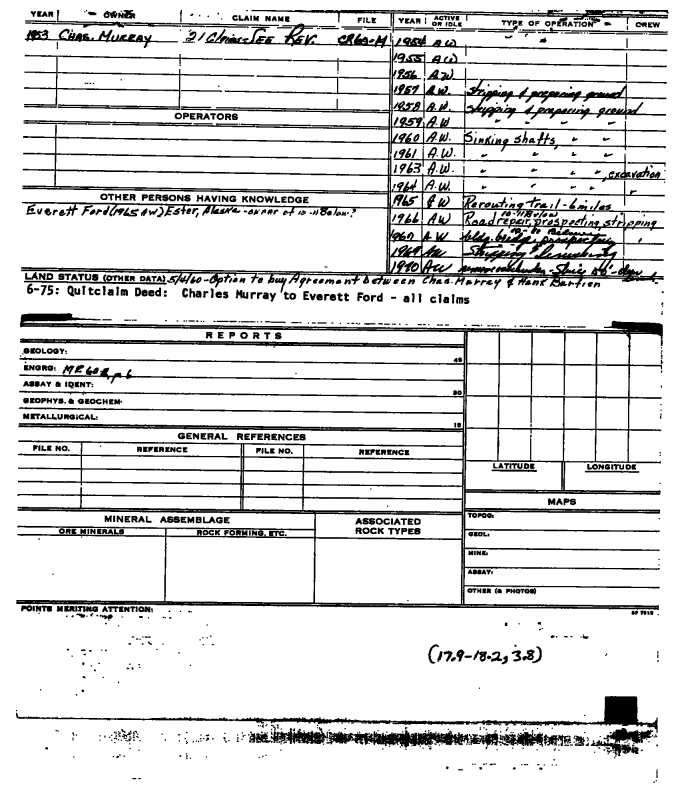 YEAR OWNER CLAIM NAME FILE YEAR ACTIVE OR IDLE TYPE OF OPERATION CREW
1953 Chas. Murray 21 Claims-See Rev. CR63-M 1954 A W " "
1955 A W
1956 A.W.
1957 A.W. Stripping & preparing ground
1958 A.W. Stripping & preparing ground
OPERATORS 1959 A.W " " "
1960 A.W. Sinking shafts, " "
1961 A.W. " " " "
1963 A.W. " " " , excavation
1964 A.W. " " " "
OTHER PERSONS HAVING KNOWLEDGE 1965 A W Rerouting trail - 6 miles
Everett Ford (1965 AW) Ester, Alaska - owner of 10-11 Below? 10-11 Below
1966 AW Road repair, prospecting stripping
1967 A W bldg. bridge, prospecting
1969 AW Stripping
1970 AW
LAND STATUS (OTHER DATA) 5/4/60 - Option to buy Agreement between Chas. Murray & Hank
6-75: Quitclaim Deed: Charles Murray to Everett Ford - all claims
REPORTS
GEOLOGY: 45
ENGRG: MR 60-2, p. 6
ASSAY & IDENT: 30
GEOPHYS. & GEOCHEM:
METALLURGICAL: 15
GENERAL REFERENCES
FILE NO. REFERENCE FILE NO. REFERENCE
LATITUDE LONGITUDE
MAPS
MINERAL ASSEMBLAGE ASSOCIATED ROCK TYPES
ORE MINERALS ROCK FORMING, ETC.
TOPOG:
GEOL:
MINE:
ASSAY:
OTHER (& PHOTOS)
POINTS MERITING ATTENTION: SP 7515
(17.9-18.2, 3.8)